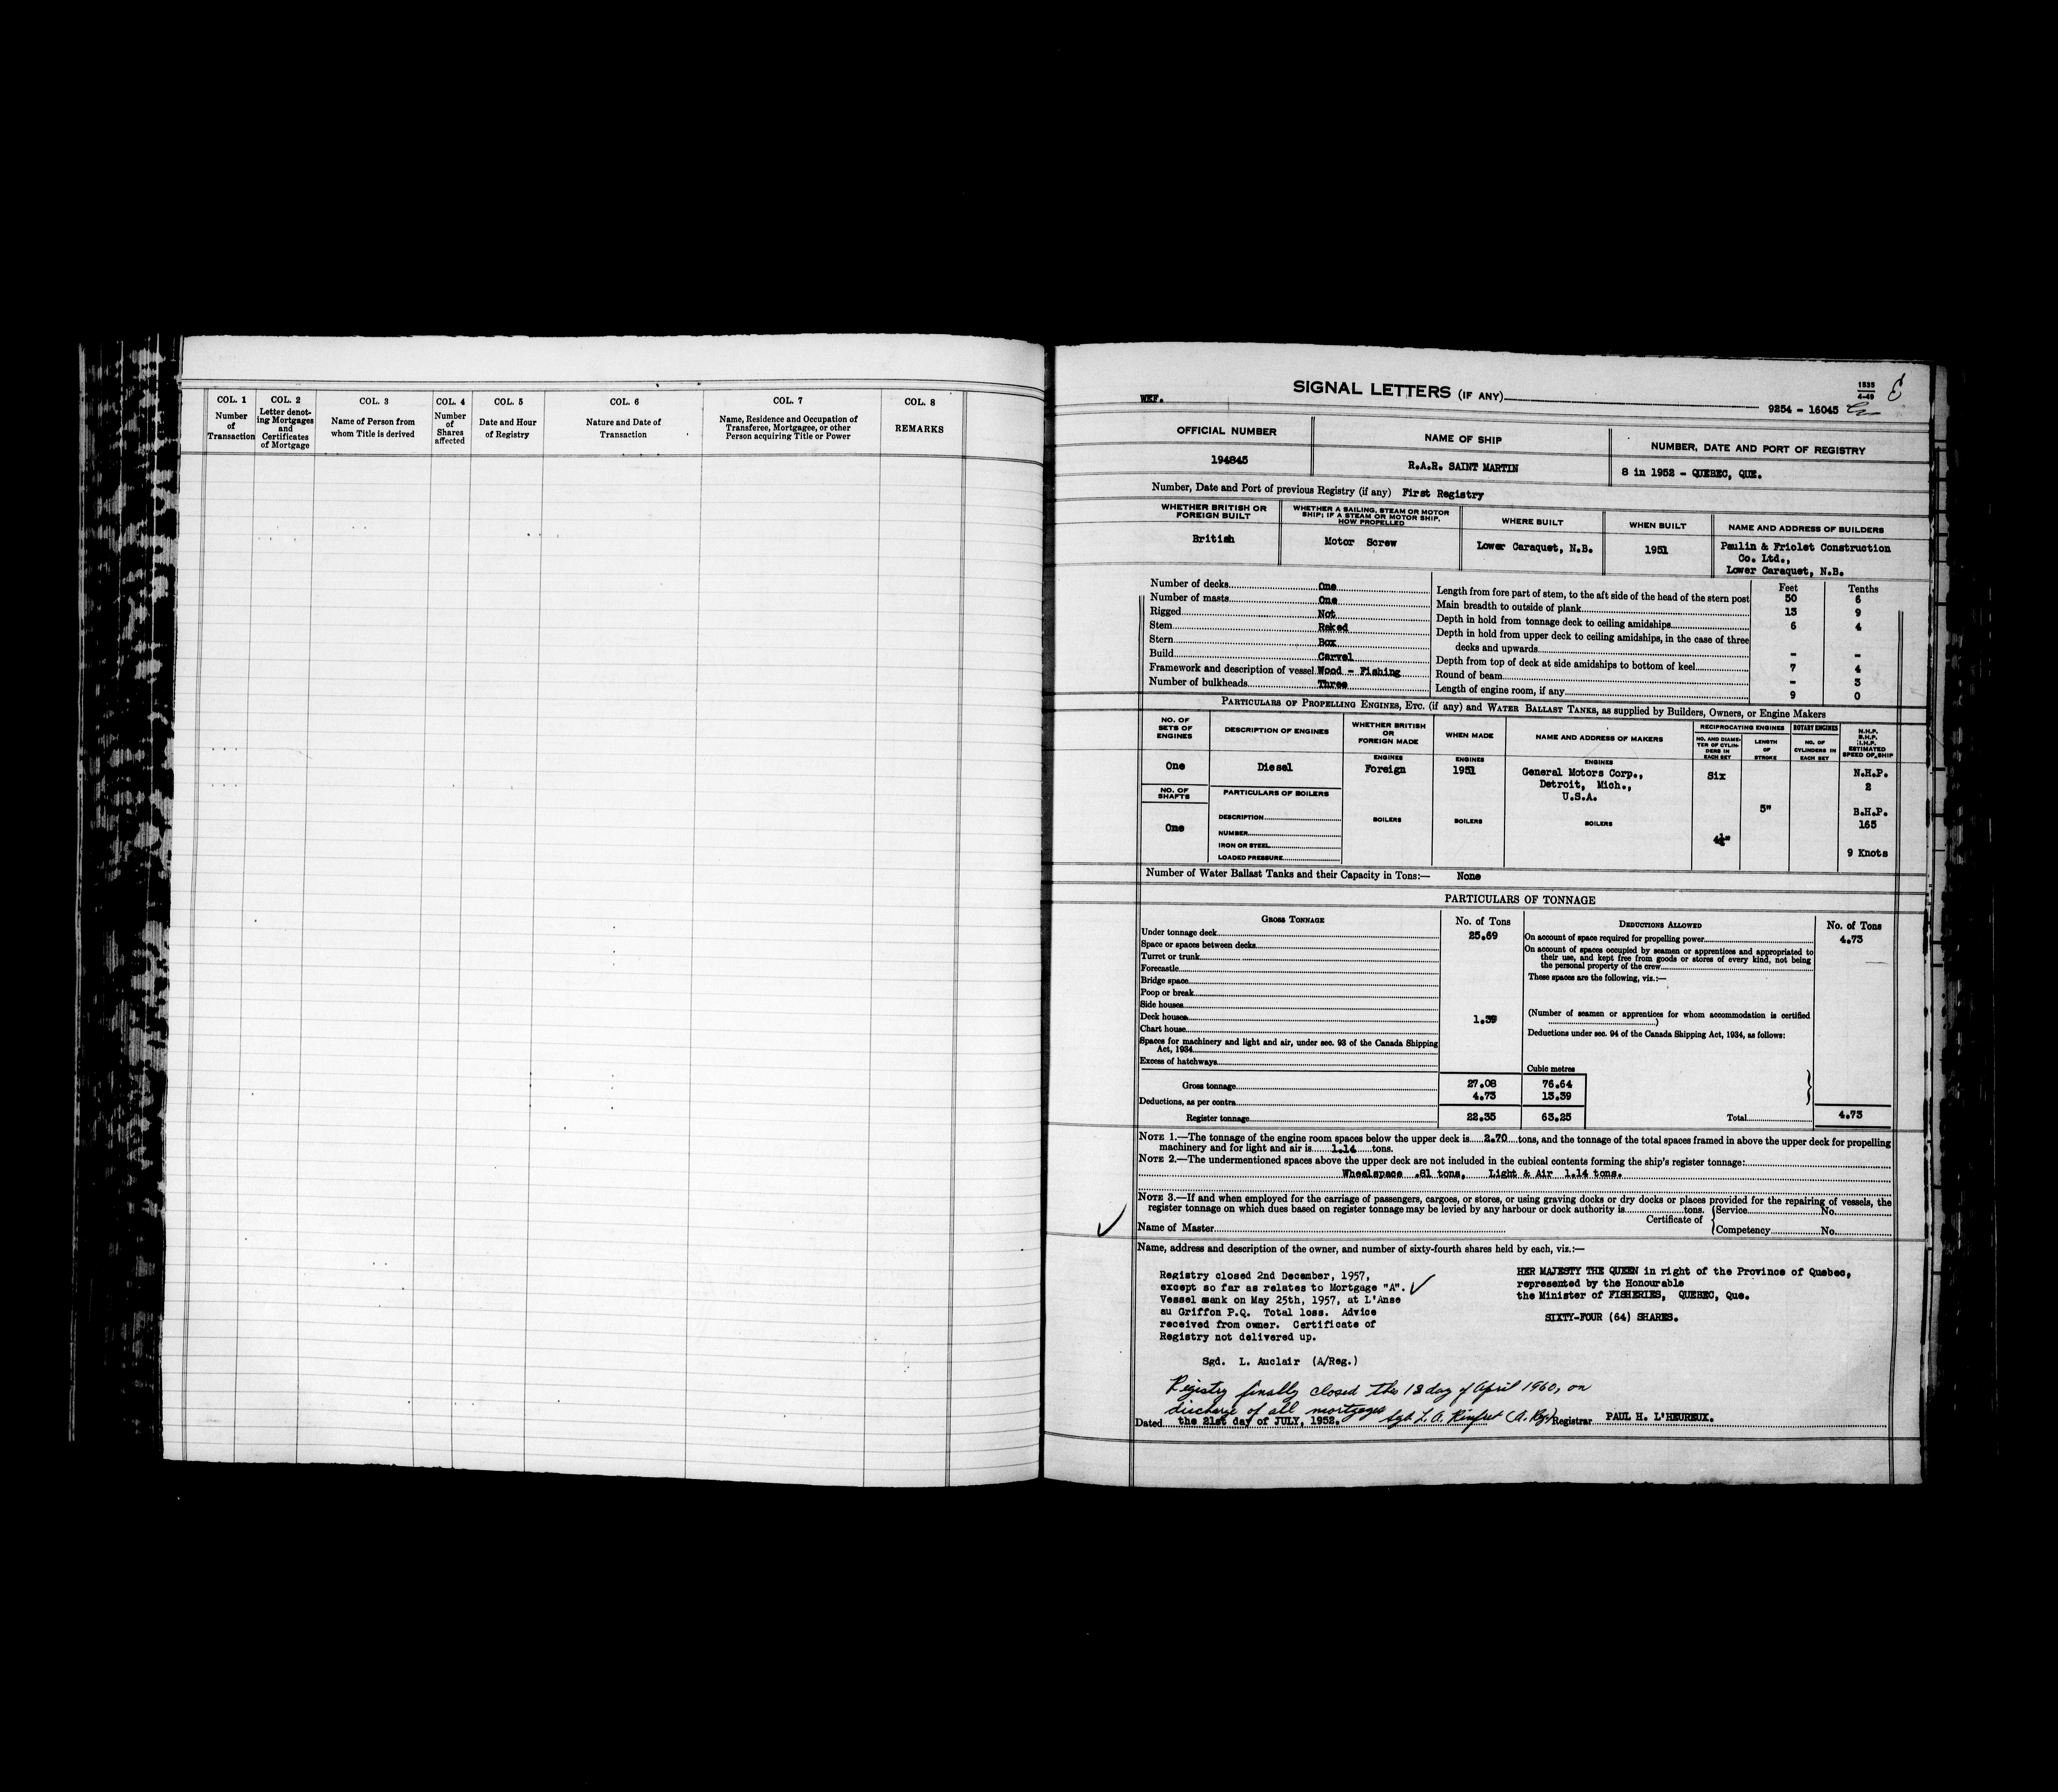 COL. 1
Number
of
Transaction
COL. 2
Letter denot-
ing Mortgages
and
Certificates
of Mortgage
COL. 3
Name of Person from
whom Title is derived
COL. 4
Number
of
Shares
affected
COL. 5
Date and Hour
of Registry
COL. 6
Nature and Date of
Transaction
COL. 7
Name, Residence and Occupation of
Transferee, Mortgagee, or other
Person acquiring Title or Power
COL. 8
REMARKS
WEF.
SIGNAL LETTERS (IF ANY)
1535
4-49
9254 - 16045
OFFICIAL NUMBER
194845
NAME OF SHIP
R.A.R. SAINT MARTIN
NUMBER, DATE AND PORT OF REGISTRY
8 in 1952 - QUEBEC, QUE.
Number, Date and Port of previous Registry (if any) First Registry
WHETHER BRITISH OR
FOREIGN BUILT
British
WHETHER A SAILING, STEAM OR MOTOR
SHIP; IF A STEAM OR MOTOR SHIP,
HOW PROPELLED
Motor Screw
WHERE BUILT
Lower Caraquet, N.B.
WHEN BUILT
1951
NAME AND ADDRESS OF BUILDERS
Paulin & Friolet Construction
Co. Ltd.,
Lower Caraquet, N.B.
Number of decks One
Number of masts One
Rigged Not
Stem Raked
Stern Box
Build Carvel
Framework and description of vessel Wood - Fishing
Number of bulkheads Three
Feet Tenths
Length from fore part of stem, to the aft side of the head of the stern post 50 6
Main breadth to outside of plank 13 9
Depth in hold from tonnage deck to ceiling amidships 6 4
Depth in hold from upper deck to ceiling amidships, in the case of three
decks and upwards - -
Depth from top of deck at side amidships to bottom of keel 7 4
Round of beam - 3
Length of engine room, if any 9 0
PARTICULARS OF PROPELLING ENGINES, ETC. (if any) and WATER BALLAST TANKS, as supplied by Builders, Owners, or Engine Makers
NO. OF
SETS OF
ENGINES
One
NO. OF
SHAFTS
One
DESCRIPTION OF ENGINES
Diesel
PARTICULARS OF BOILERS
DESCRIPTION
NUMBER
IRON OR STEEL
LOADED PRESSURE
WHETHER BRITISH
OR
FOREIGN MADE
ENGINES
Foreign
BOILERS
WHEN MADE
ENGINES
1951
BOILERS
NAME AND ADDRESS OF MAKERS
ENGINES
General Motors Corp.,
Detroit, Mich.,
U.S.A.
BOILERS
RECIPROCATING ENGINES
NO. AND DIAME-
TER OF CYLIN-
DERS IN
EACH SET
Six
4¼"
LENGTH
OF
STROKE
5"
ROTARY ENGINES
NO. OF
CYLINDERS IN
EACH SET
N.H.P.
B.H.P.
I.H.P.
ESTIMATED
SPEED OF SHIP
N.H.P.
2
B.H.P.
165
9 Knots
Number of Water Ballast Tanks and their Capacity in Tons:— None
PARTICULARS OF TONNAGE
GROSS TONNAGE No. of Tons
Under tonnage deck 25.69
Space or spaces between decks
Turret or trunk
Forecastle
Bridge space
Poop or break
Side houses
Deck houses 1.39
Chart house
Spaces for machinery and light and air, under sec. 93 of the Canada Shipping
Act, 1934
Excess of hatchways
Cubic metres
Gross tonnage 27.08 76.64
Deductions, as per contra 4.73 13.39
Register tonnage 22.35 63.25
DEDUCTIONS ALLOWED No. of Tons
On account of space required for propelling power 4.73
On account of spaces occupied by seamen or apprentices and appropriated to
their use, and kept free from goods or stores of every kind, not being
the personal property of the crew
These spaces are the following, viz.:—
(Number of seamen or apprentices for whom accommodation is certified
)
Deductions under sec. 94 of the Canada Shipping Act, 1934, as follows:
Total 4.73
NOTE 1.—The tonnage of the engine room spaces below the upper deck is 2.70 tons, and the tonnage of the total spaces framed in above the upper deck for propelling
machinery and for light and air is 1.14 tons.
NOTE 2.—The undermentioned spaces above the upper deck are not included in the cubical contents forming the ship's register tonnage:
Wheelspace .81 tons, Light & Air 1.14 tons.
NOTE 3.—If and when employed for the carriage of passengers, cargoes, or stores, or using graving docks or dry docks or places provided for the repairing of vessels, the
register tonnage on which dues based on register tonnage may be levied by any harbour or dock authority is tons.
Name of Master
Certificate of
Service No.
Competency No.
Name, address and description of the owner, and number of sixty-fourth shares held by each, viz.:—
Registry closed 2nd December, 1957,
except so far as relates to Mortgage "A".
Vessel sank on May 25th, 1957, at L'Anse
au Griffon P.Q. Total loss. Advice
received from owner. Certificate of
Registry not delivered up.
Sgd. L. Auclair (A/Reg.)
HER MAJESTY THE QUEEN in right of the Province of Quebec,
represented by the Honourable
the Minister of FISHERIES, QUEBEC, Que.
SIXTY-FOUR (64) SHARES.
Registry finally closed this 12 day of April 1960, on
discharge of all mortgages Sgd L. A. Rinfret (A. Reg.)
Dated the 21st day of JULY, 1952. Registrar PAUL H. L'HEUREUX.